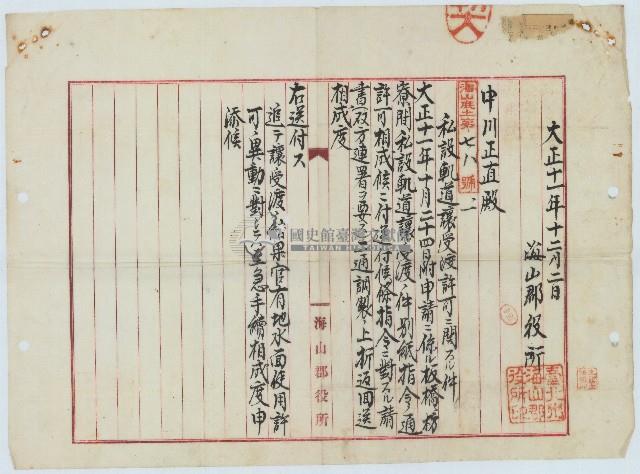 大正十一年十二月二日
海山郡役所
臺北州海山郡役所印
中川正直殿
海山庶土第七八號ノ二
私設軌道讓受渡許可ニ関スル件
大正十一年十月二十四日附申請ニ係ル板橋枋
寮間私設軌道讓受渡ノ件別紙指令通
許可相成候ニ付送付候條指令ニ對スル請
書双方連署ヲ要シ通調製ノ上折返回送
相成度
右送付ス
追テ讓受渡ノ結果官有地水面使用許
可ニ異動ニ對シテ至急手續相成度申
添候
海山郡役所
國史館臺灣文獻館
TAIWAN HISTORICA